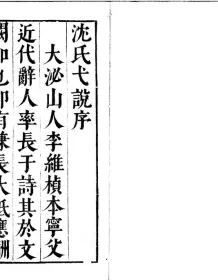 沈氏弋說序
大泌山人李維楨本寧父
近代辭人率長于詩其於文
闕如也卽有兼長大抵應酬